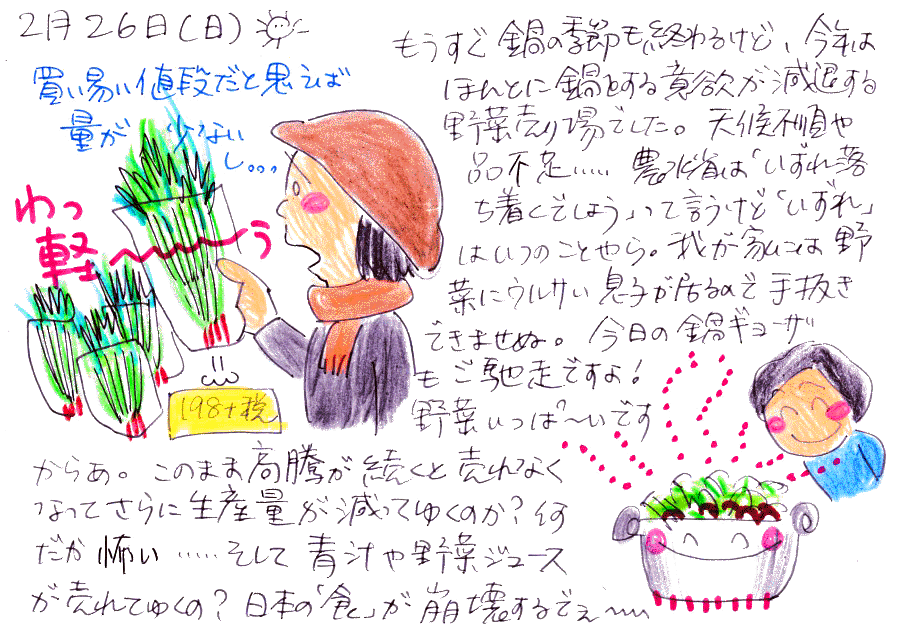 2月26日(日)
買い易い値段だと思えば
量が少ない
し...
わっ
軽〜〜う
198+税
もうすぐ鍋の季節も終わるけど、今年は
ほんとに鍋をする意欲が減退する
野菜売り場でした。天候不順や
品不足…… 農水省は「いずれ落
ち着くでしょう」って言うけど「いずれ」
はいつのことやら。我が家には野
菜にウルサい息子が居るので手抜き
できませぬ。今日の鍋ギョーザ
もご馳走ですよ!
野菜いっぱ〜いです
からあ。このまま高騰が続くと売れなく
なってさらに生産量が減ってゆくのか?何
だか怖い……そして青汁や野菜ジュース
が売れてゆくの?日本の「食」が崩壊するでぇ〜